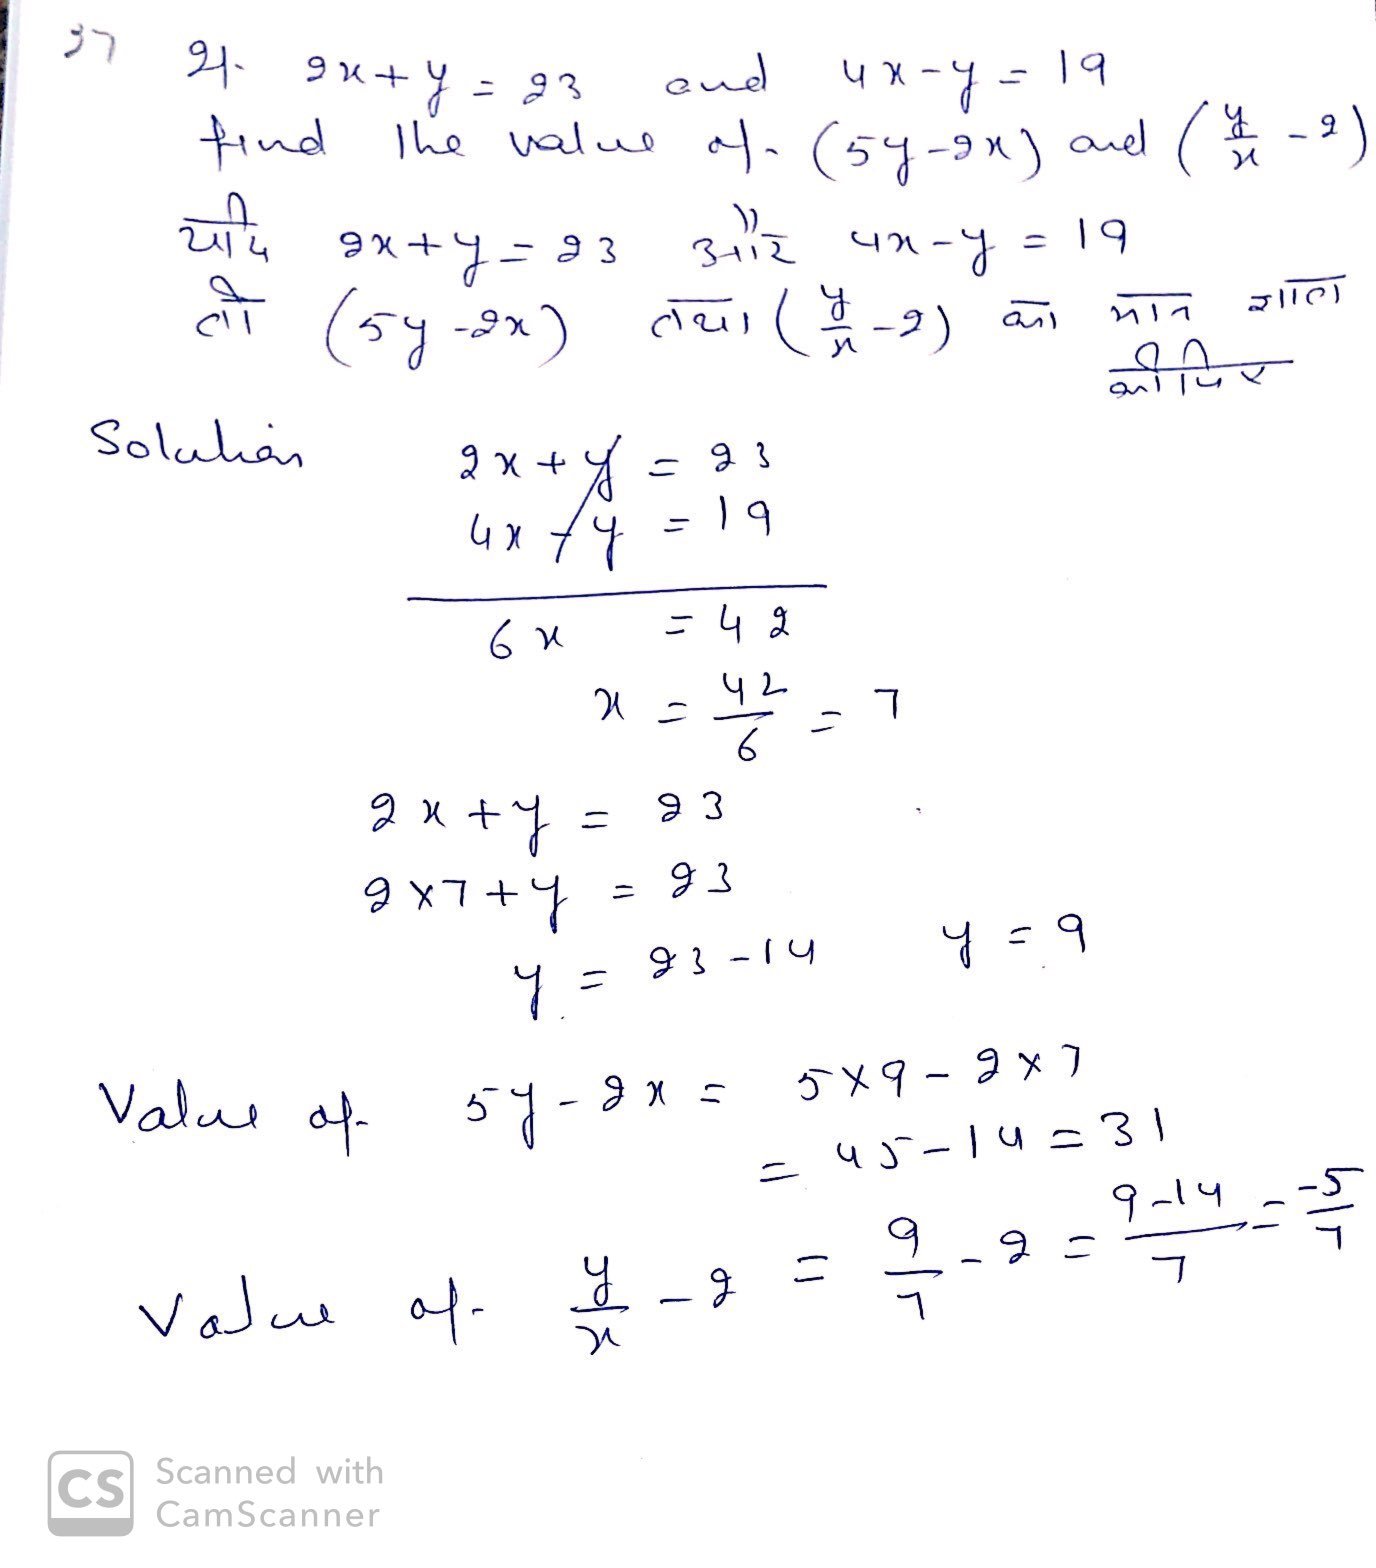 37 If 2x+y = 23 and 4x-y = 19
find the value of (5y-2x) and (y/x - 2)
यदि 2x+y = 23 और 4x-y = 19
तो (5y-2x) तथा (y/x - 2) का मान ज्ञात
कीजिए
Solution
2x+y = 23
4x-y = 19
6x = 42
x = 42/6 = 7
2x+y = 23
2x7+y = 23
y = 23-14 y = 9
Value of 5y-2x = 5x9-2x7
= 45-14 = 31
Value of y/x - 2 = 9/7 - 2 = 9-14/7 = -5/7
CS Scanned with
CamScanner